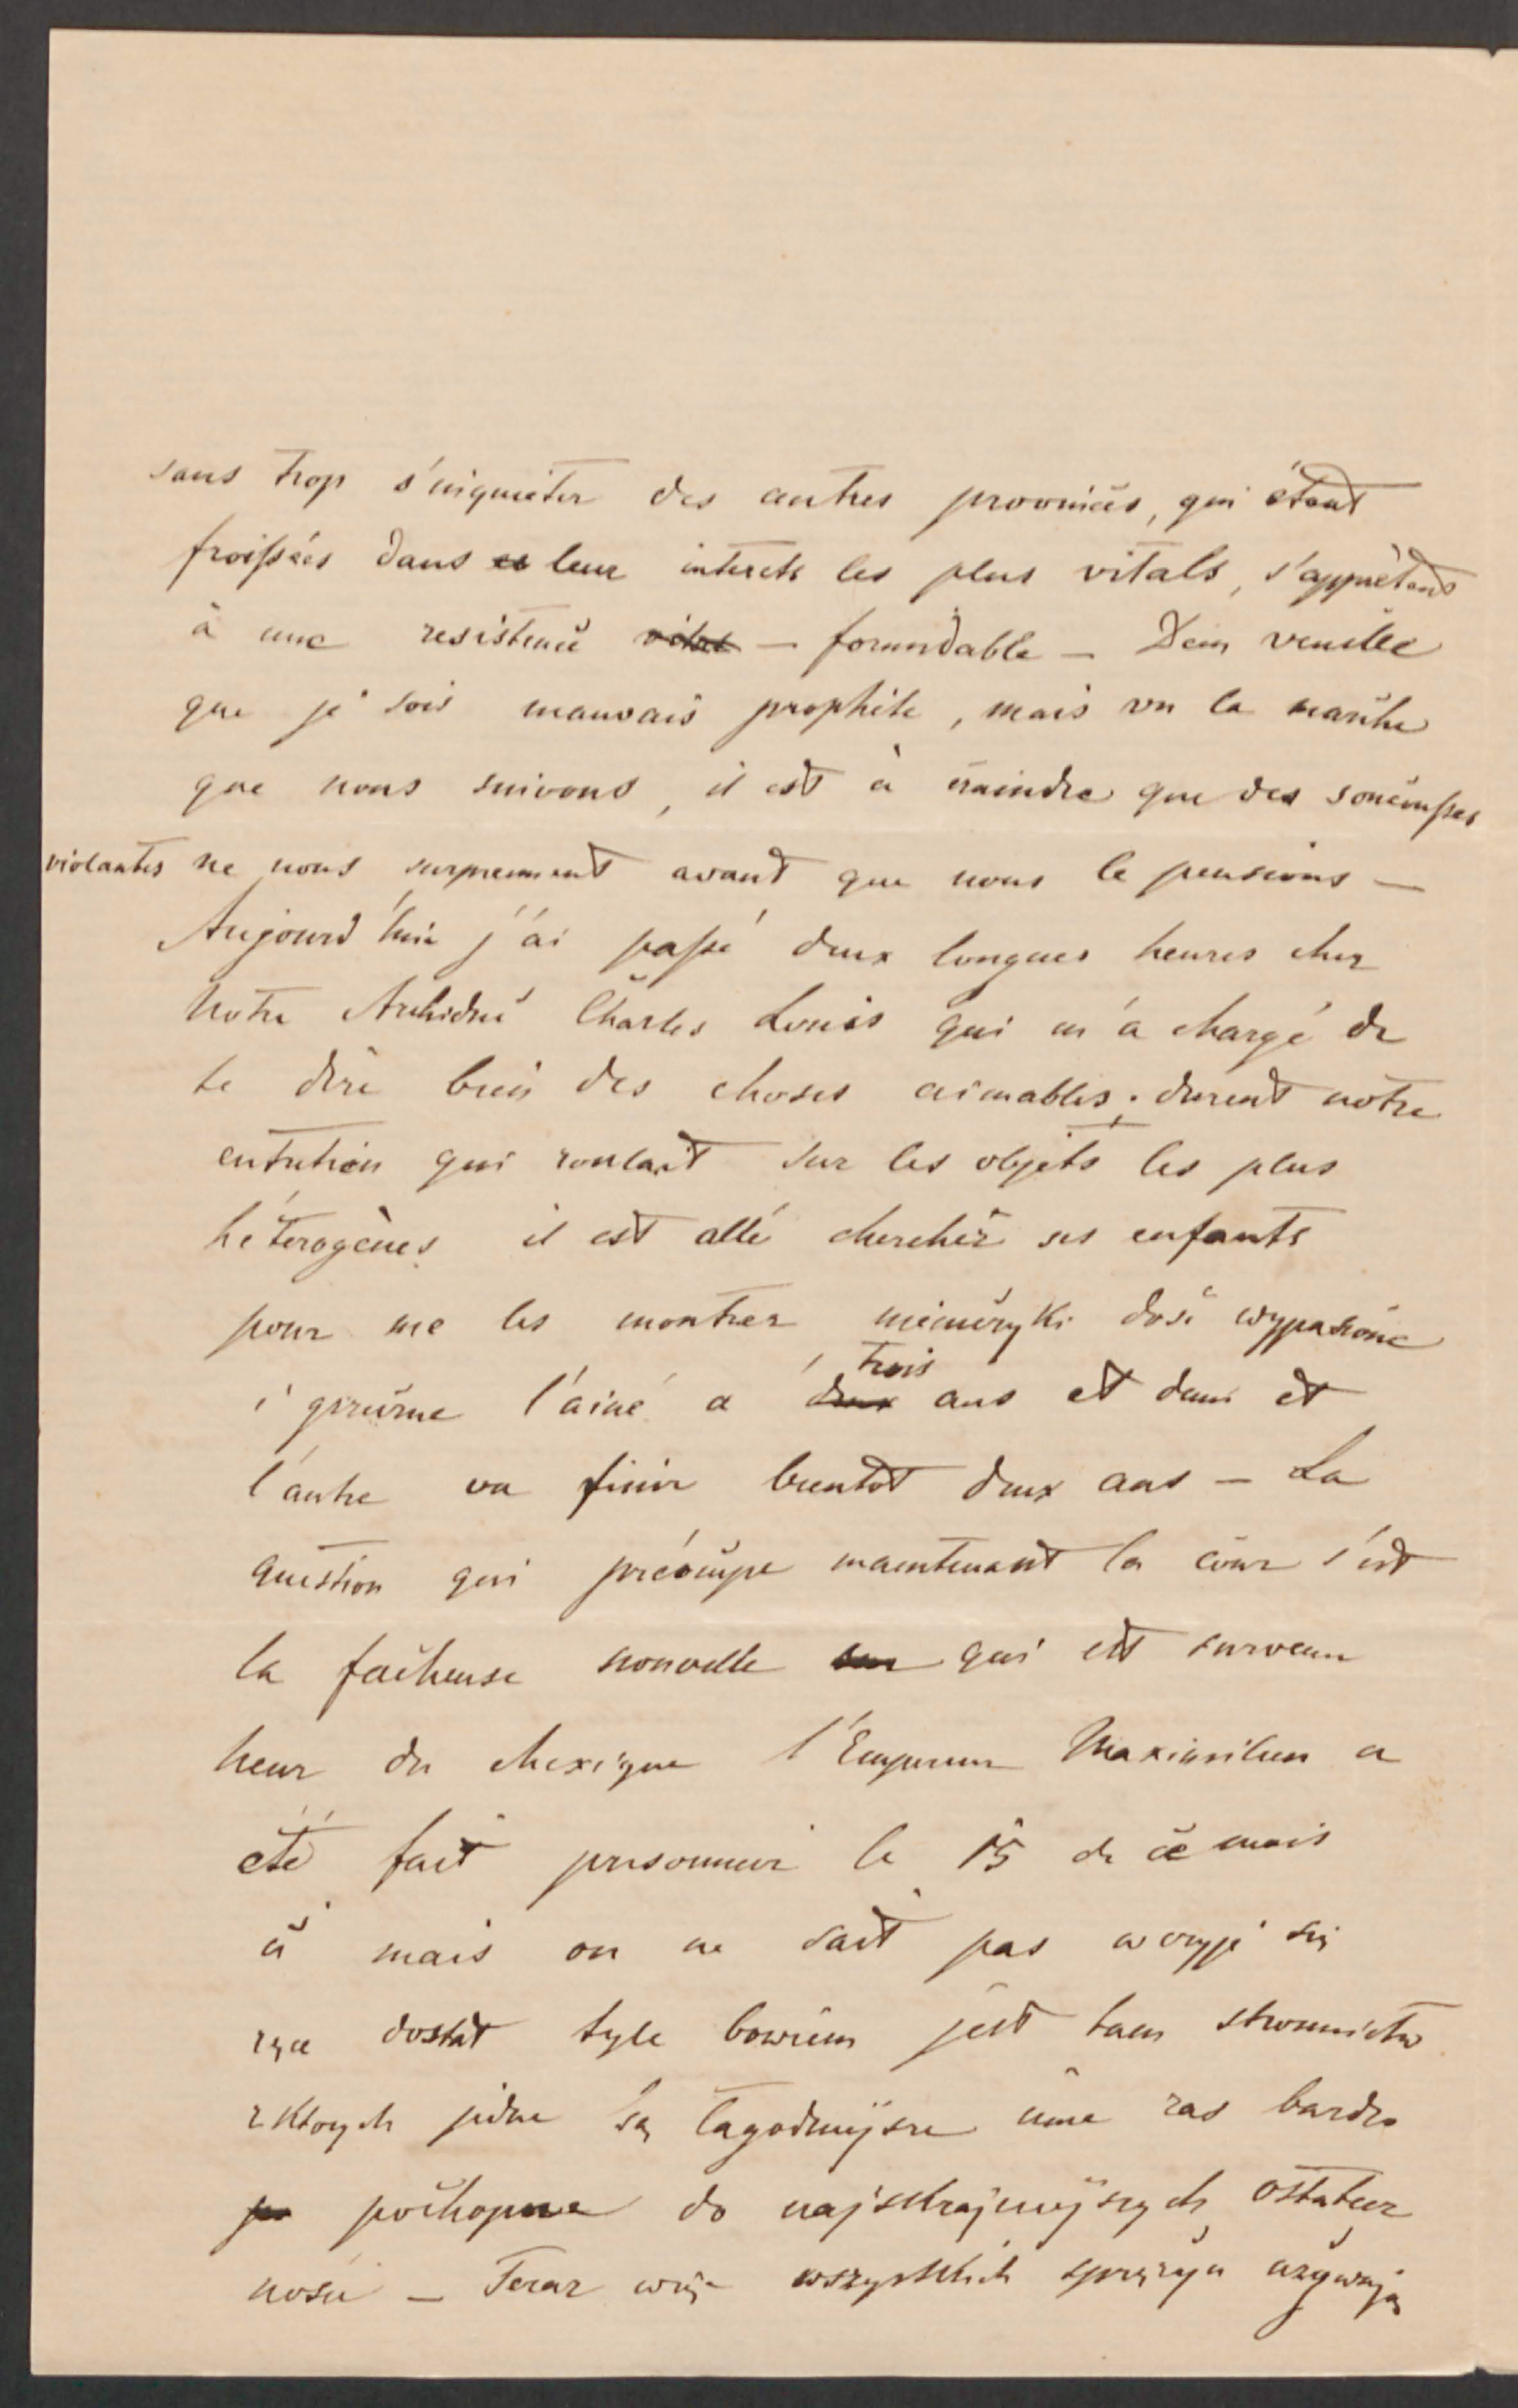 sans trop s'inquieter des autres provinces, qui étant
froissées dans leur interets les plus vitals, s'apprètent
à une resistence vitale — formidable — Dieu veuille
que je sois mauvais prophète, mais vu la marche
que nous suivons, il est à craindre que des secousses
violantes ne nous surprennent avant que nous le pensions —
Aujourd'hui j'ai passé deux longues heures chez
notre Archiduc Charles Louis qui m'a chargé de
te dire bien des choses aimables; durent nôtre
entretien qui roulait sur les objets les plus
héterogènes il est allé chercher ses enfants
pour me les montrer niemczyki dość wypasione
i grzeczne l'ainé a deux trois ans et demi et
l'autre va finir bientot deux ans — La
question qui préocupe maintenant la cour c'est
la facheuse nouvelle sur qui est survenu
heur du Mexique l'Empereur Maximilien a
été fait prisonnier le 15 de ce mois
mais on ne sait pas w czyje się
ręce dostał tyle bowiem jest tam stronnictw
z ktorych jedne są łagodniejsze inne zas bardzo
po pochopne do najskrajniejszych ostatecz
nosci — Teraz więc wszystkich sprężyn używają